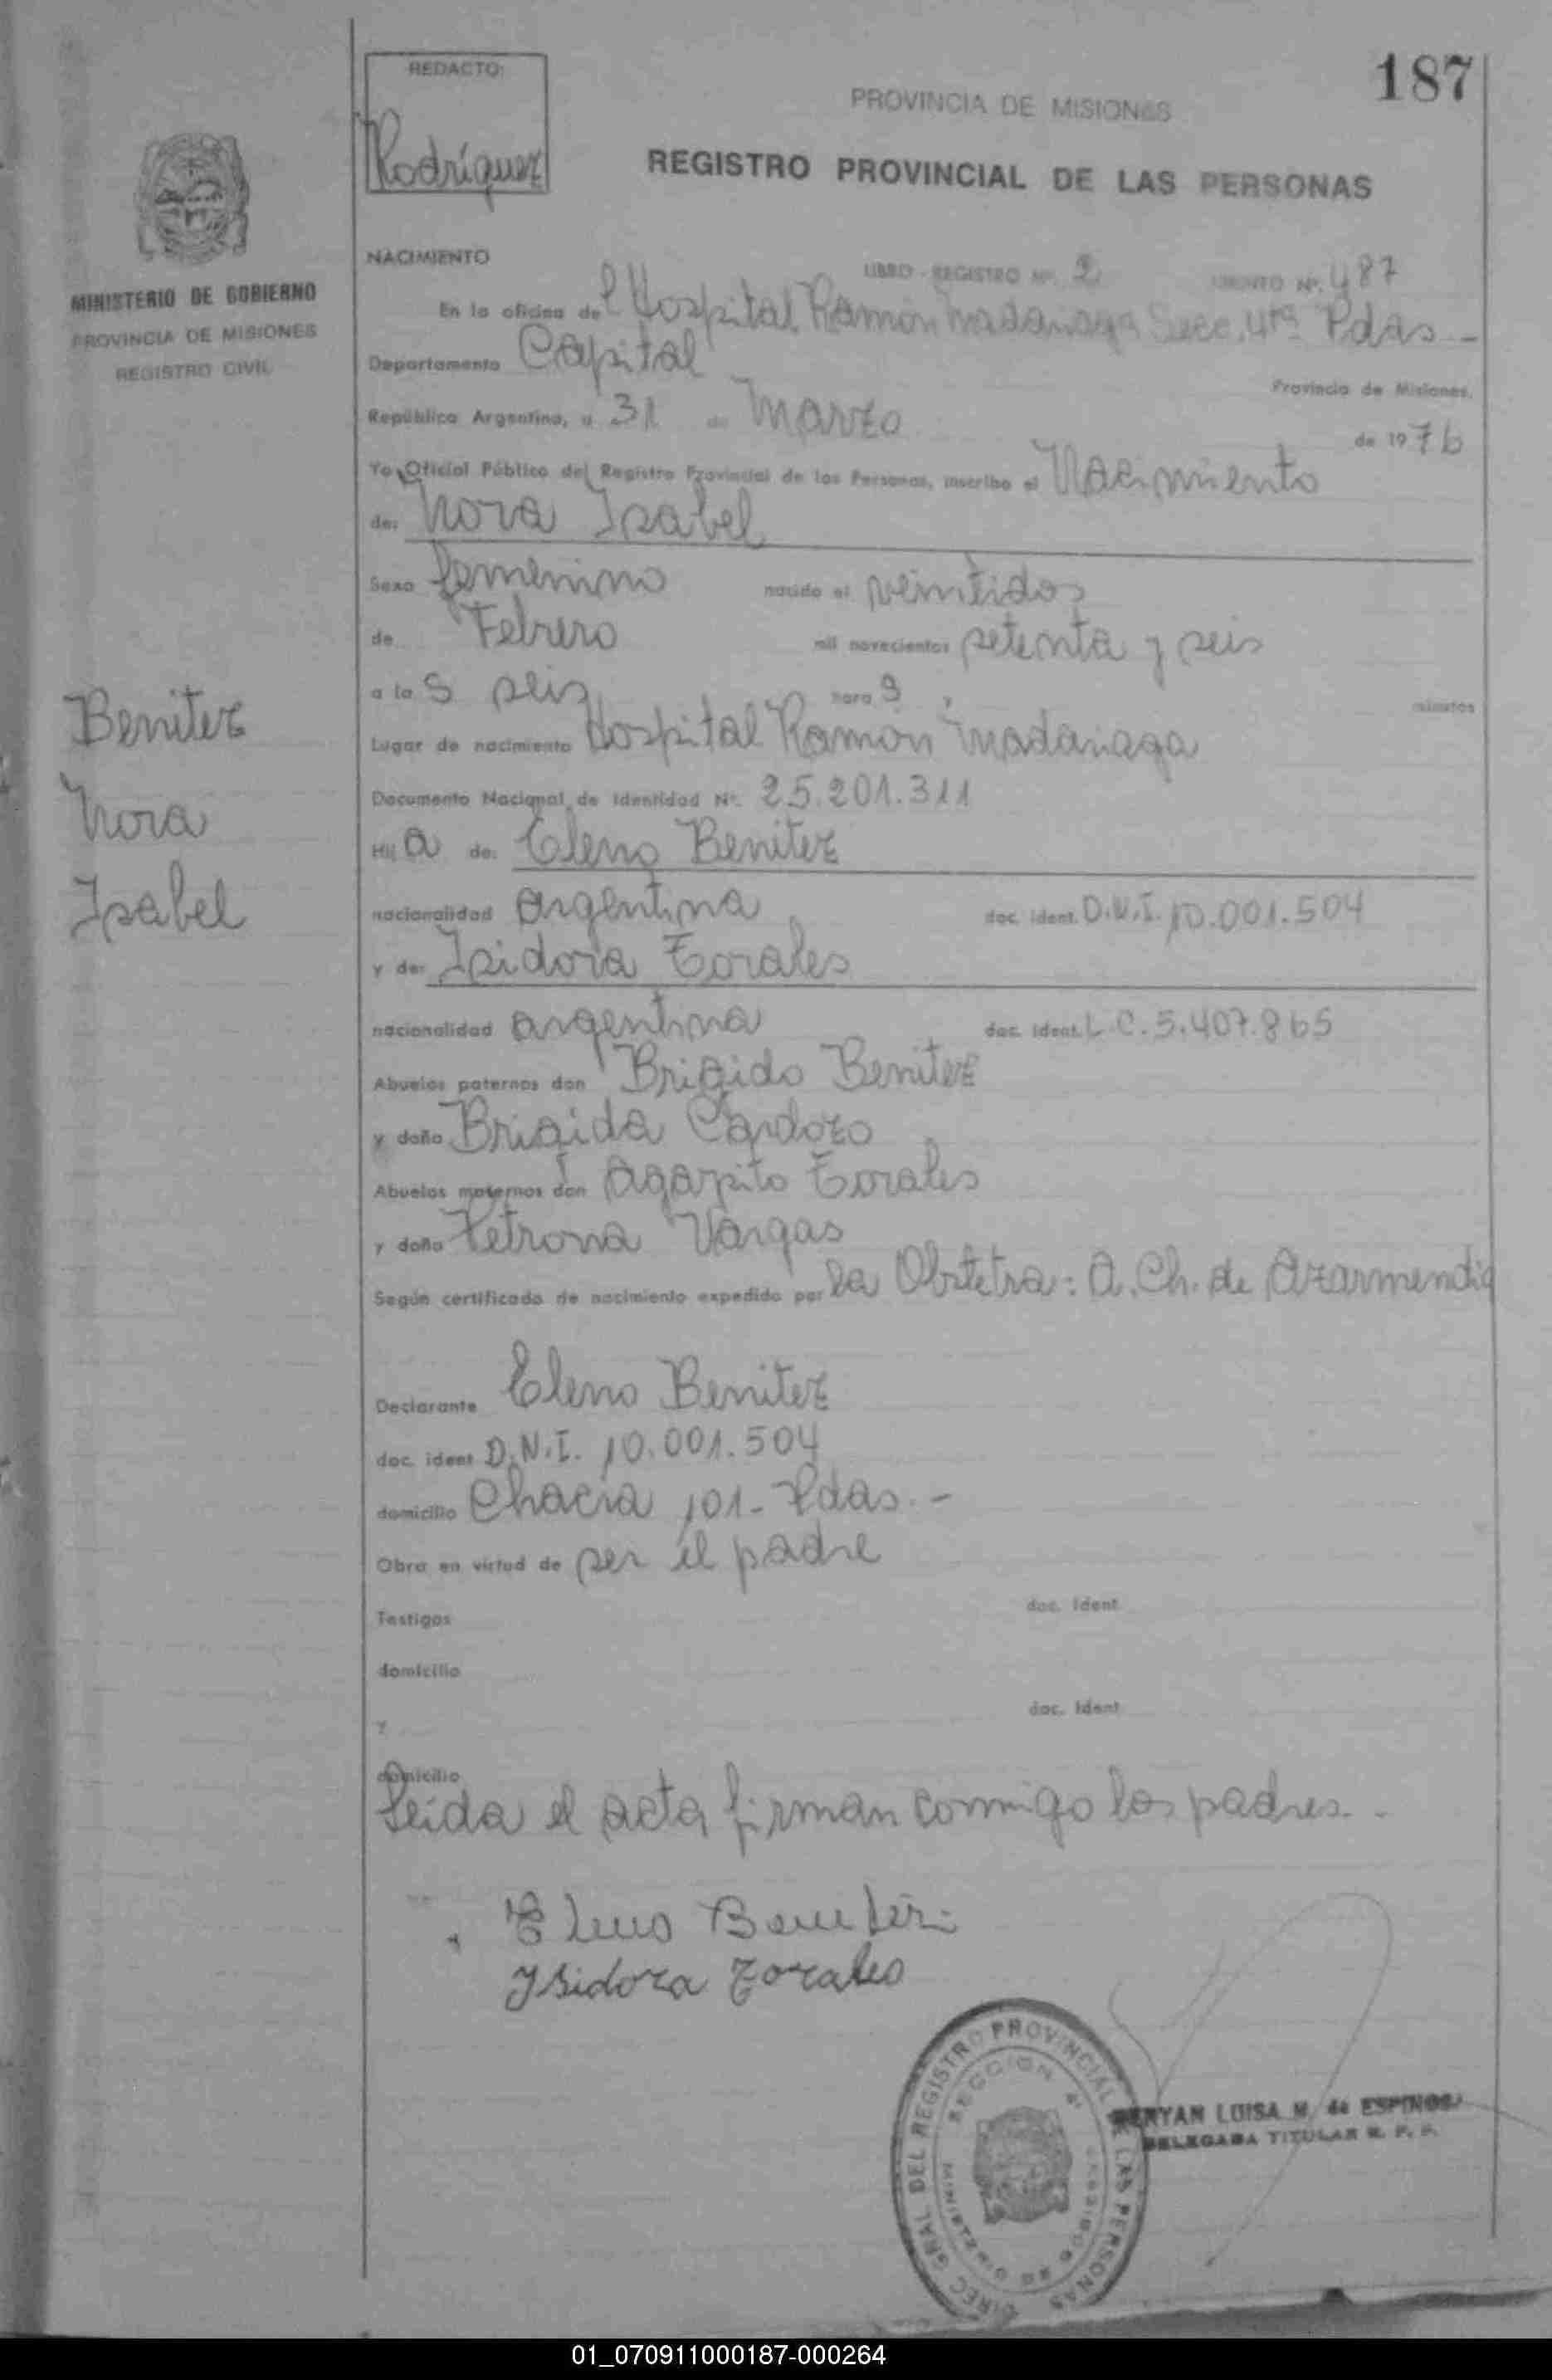 187
REDACTO:
Rodríguez
PROVINCIA DE MISIONES
REGISTRO PROVINCIAL DE LAS PERSONAS
MINISTERIO DE GOBIERNO
PROVINCIA DE MISIONES
REGISTRO CIVIL
NACIMIENTO LIBRO - REGISTRO Nº. 2 ASIENTO Nº. 487
En la oficina del Hospital Ramón Madariaga Secc. 4ta Pdas -
Departamento Capital Provincia de Misiones,
República Argentina, a 31 de Marzo de 1976
Yo, Oficial Público del Registro Provincial de las Personas, inscribo el Nacimiento
de: Nora Isabel
Sexo femenino nacido el veintidos
de Febrero mil novecientos setenta y seis
a las seis horas minutos
Lugar de nacimiento Hospital Ramón Madariaga
Documento Nacional de Identidad Nº. 25.201.311
Hija de: Eleno Benitez
nacionalidad argentina doc. ident. D.N.I. 10.001.504
y de: Isidora Torales
nacionalidad argentina doc. ident. L.C. 5.407.865
Abuelos paternos don Brigido Benitez
y doña Brigida Cardozo
Abuelos maternos don Agapito Torales
y doña Petrona Vargas
Según certificado de nacimiento expedido por la Obstetra: A. Ch. de Azarmendia
Benitez
Nora
Isabel
Declarante Eleno Benitez
doc. ident D.N.I. 10.001.504
domicilio Chacra 101 - Pdas. -
Obra en virtud de ser el padre
Testigos doc. ident
domicilio
Y doc. ident
domicilio
Leida el acta firman conmigo los padres. -
Eleno Benitez
Isidora Torales
DIREC GRAL DEL REGISTRO PROVINCIAL DE LAS PERSONAS
SECCION 4ª
MINISTERIO DE GOBIERNO
LUISA M. de ESPINOSA
DELEGADA TITULAR R. P. P.
01_070911000187-000264